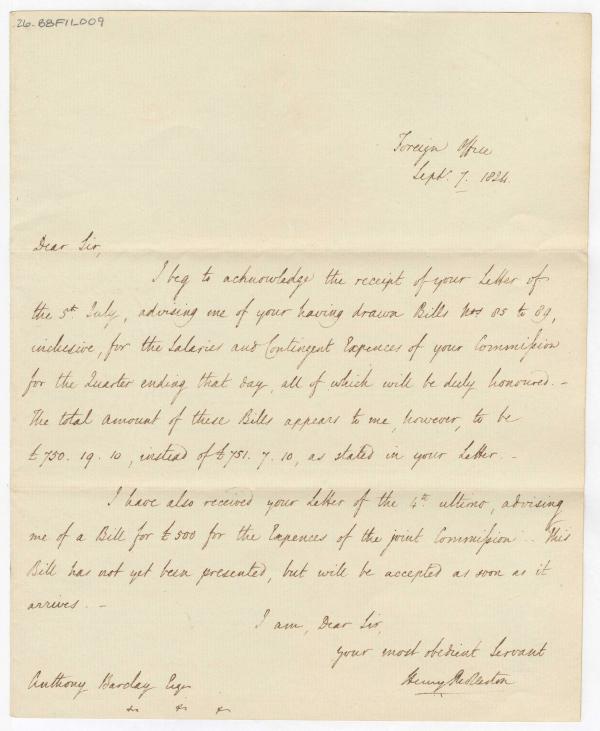 26-BBF1L009
Foreign Office
Septr. 7. 1824.
Dear Sir,
I beg to acknowledge the receipt of your Letter of
the 5th July, advising me of your having drawn Bills Nos 85 to 89,
inclusive, for the Salaries and Contingent Expences of your Commission
for the Quarter ending that day, all of which will be duly honoured. -
The total amount of these Bills appears to me, however, to be
£750. 19. 10, instead of £751. 7. 10, as stated in your Letter. -
I have also received your Letter of the 4th ultimo, advising
me of a Bill for £500 for the Expences of the joint Commission. - This
Bill has not yet been presented, but will be accepted as soon as it
arrives. -
I am, Dear Sir,
your most obedient Servant
Henry Rolleston
Anthony Barclay Esqr